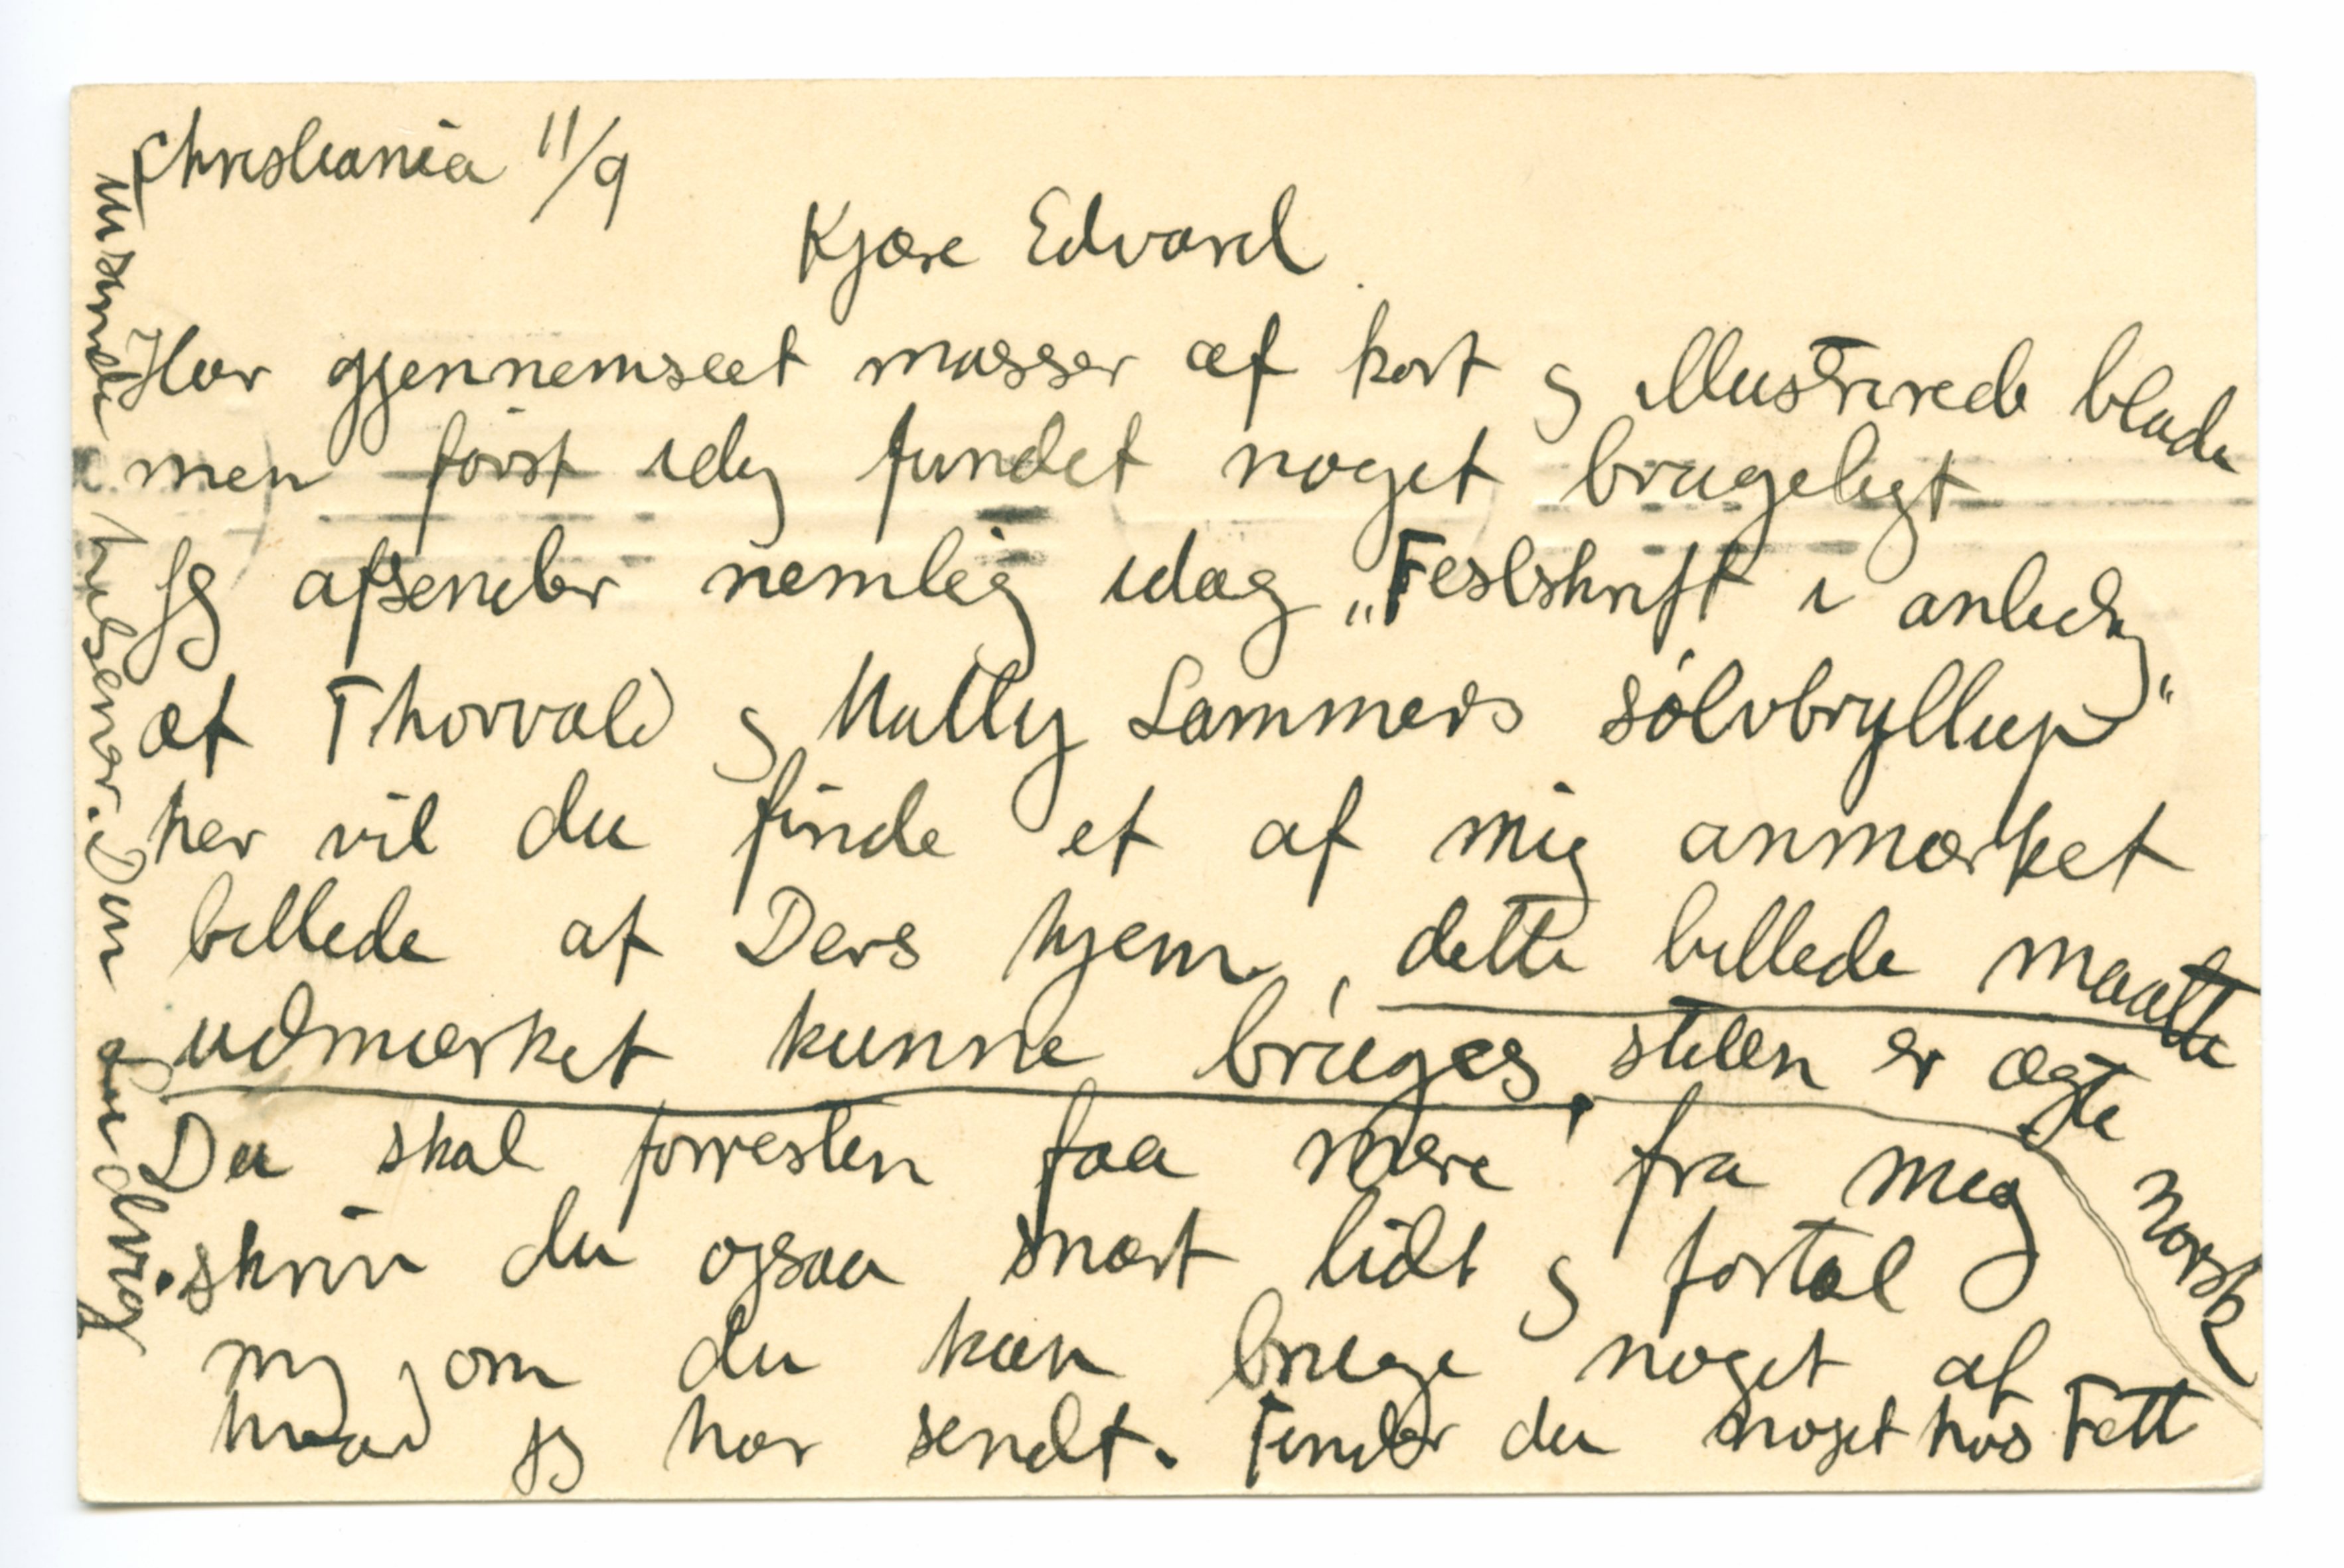 Christiania 11/9
Kjære Edvard.
Har gjennemseet masser af kort og illustrerede blade
men først idag fundet noget brugeligt
Jeg afsender nemlig idag „Festskrift i anledng
af Thorvald og Mally Lammers sølvbryllup“
her vil du finde et af mig anmærket
billede af Ders hjem, dette billede maatte
udmærket kunne bruges, stilen er ægte norsk
Du skal forresten faa mere fra mig
skriv du ogsaa snart lidt og fortæl
mig, om du kan bruge noget af
hvad jeg har sendt. Finder du noget hos Fett
hilsener. Din Ludvig.